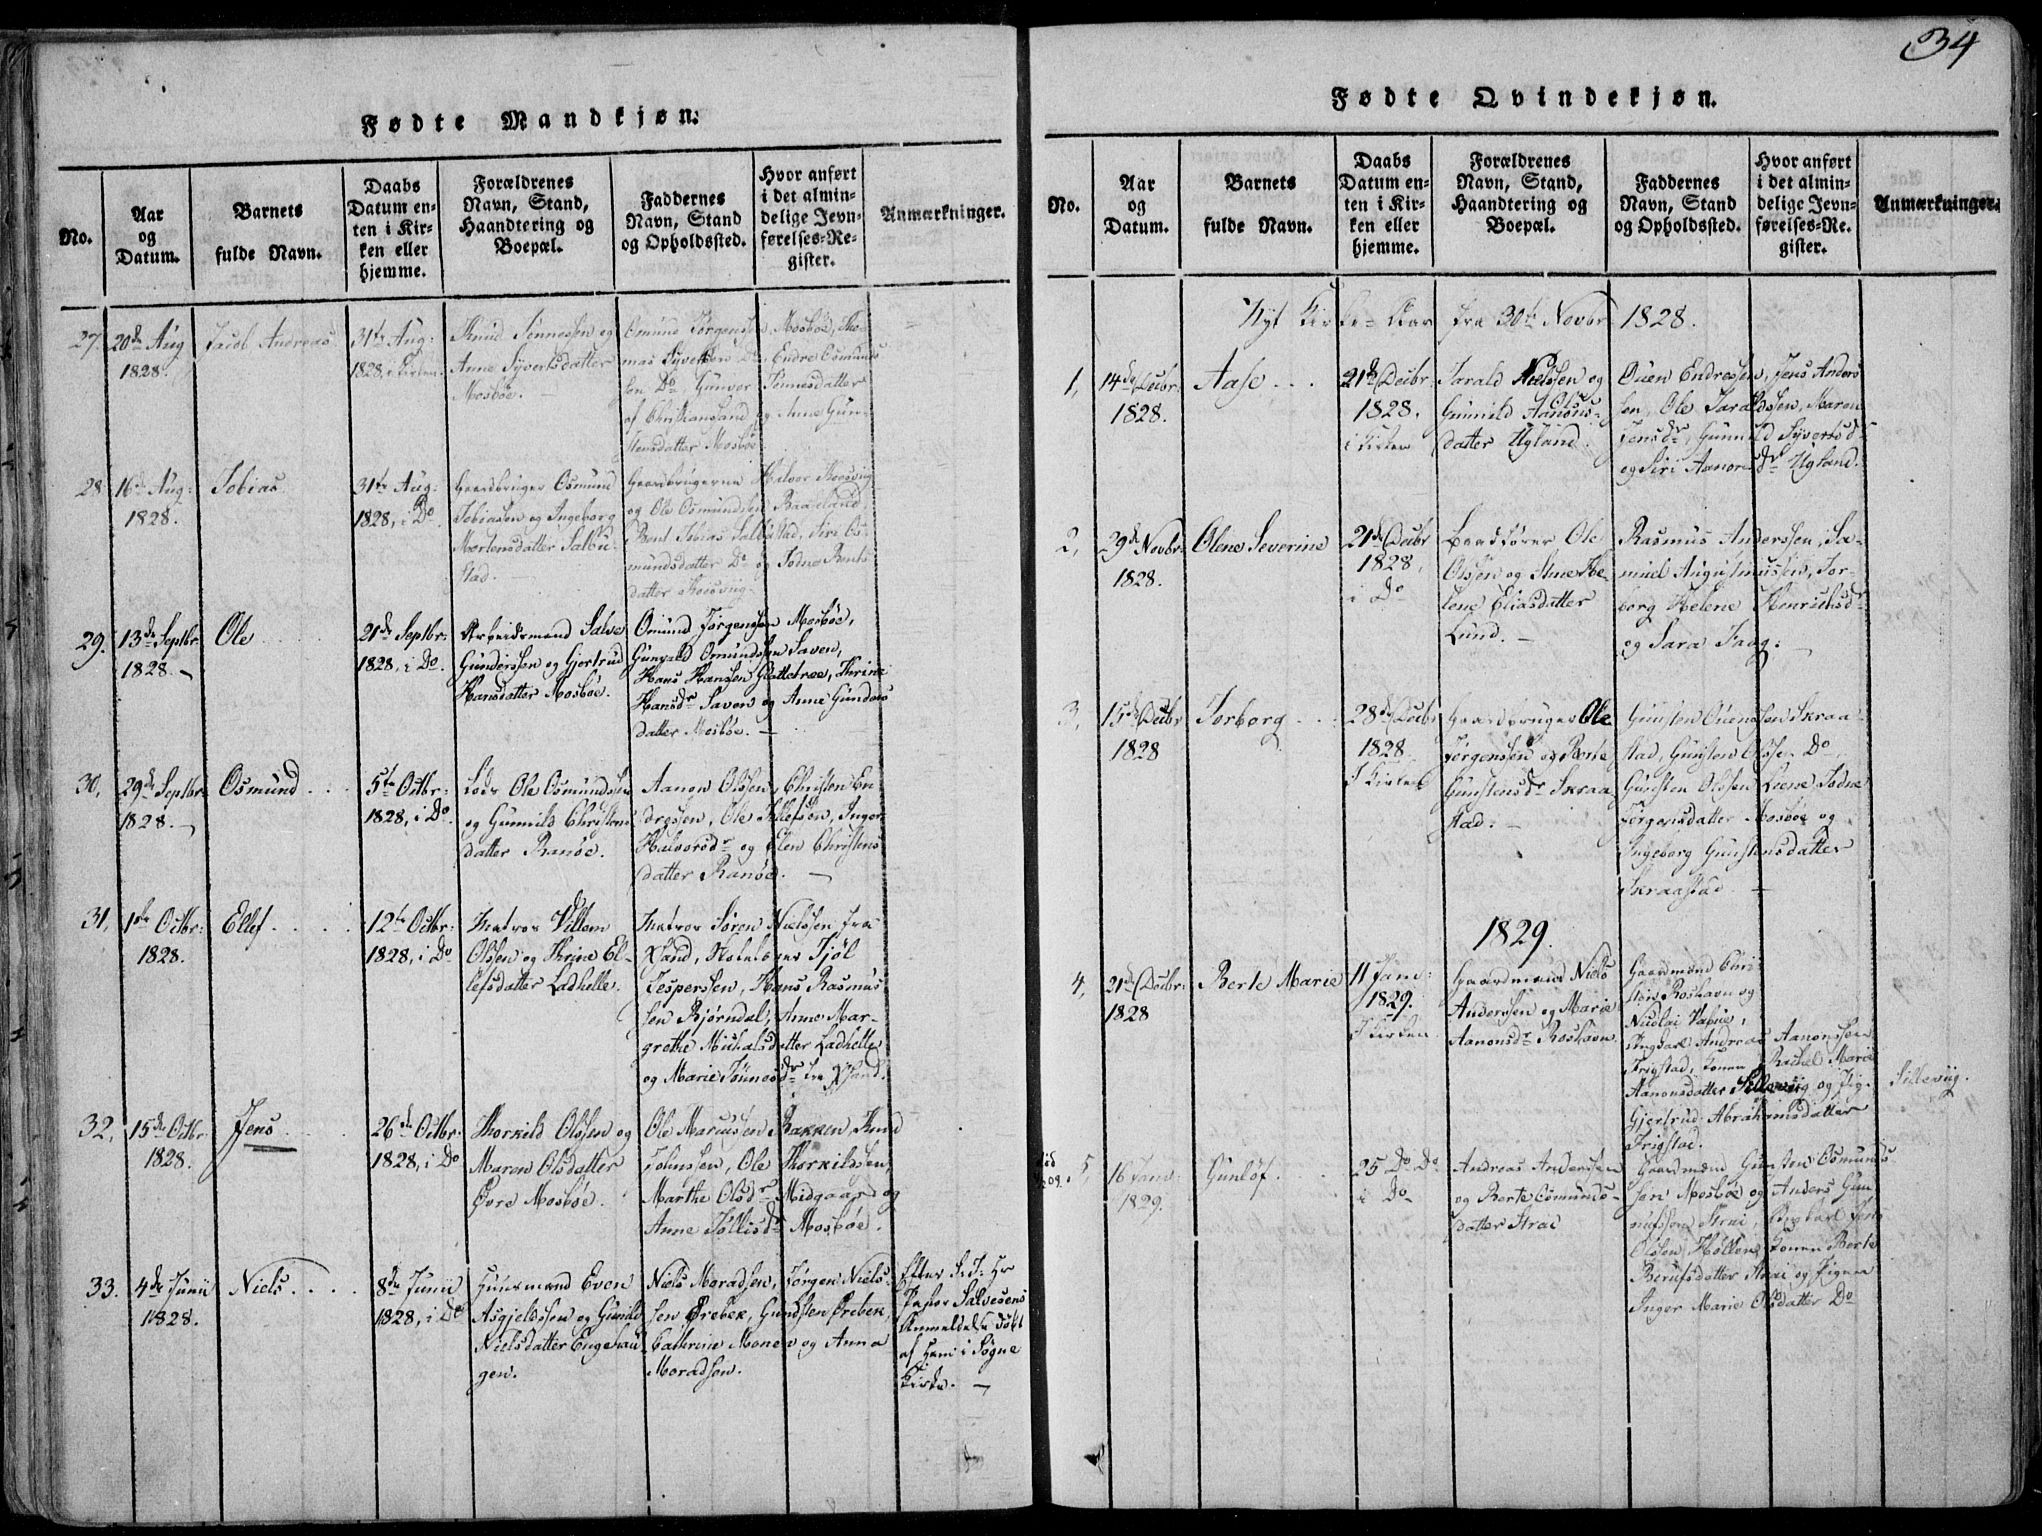 34
Fødte Mandkjøn.
No.
Aar
og
Datum.
Barnets
fulde Navn.
Daabs
Datum en-
ten i Kir-
ken eller
hjemme.
Forældrenes
Navn, Stand,
Haandtering og
Boepæl.
Faddernes
Navn, Stand
og Opholdssted.
Hvor anført
i det almin-
delige Jevn-
førelses-Re-
gister.
Anmærkninger.
27.
20de Aug
1828.
Jacob Andreas
31te Aug:
1828, i Kirken.
Knud Tønnessen og
Anne Syvertsdatter
Mosbøe.
Omund Jørgensen Mosbøe, Tho-
mas Syvertsen Do Endre Osmunds
sen Do Gunvor Tønnesdatter
af Christiansand og Anne Gun-
stensdatter Mosbøe
28
16de Aug:
1828.
Tobias
31te Aug:
1828, i Do
Gaardbruger Osmund
Tobiassen og Ingeborg
Mortensdatter Salbu-
stad.
Gaardbrugerne Halvor
og Ole Osmundsen
Bent Tobias Salbustad, Siri Os-
mundsdatter Do og Todne Bents
datter
29.
13de Septbr:
1828.
Ole
21de Septbr:
1828, i Do.
Arbeidsmand Salve
Gunderssen og Gjertrud
Hansdatter Mosbøe.
Omund Jørgensen Mosbøe,
Gunvald Omundsen Saven,
Hans Hanssen Glattetree, Thrine
Hansdr Saven og Anne Gunders
datter Mosbøe.
30,
29de Septbr:
1828.
Osmund
5te Octbr:
1828, i Do.
Lods Ole Osmundssen
og Gunnild Christens
datter Ranøe.
Aanon Olssen, Christen En
dressen, Ole Tellefsen, Inger
Halvorsdr og Elen Christens
datter Ranøe.
31,
1ste Octbr:
1828.
Ellef
12te Octbr:
1828, i Do
Matros Villem
Olssen og Thrine El-
lefsdatter Ladhelle.
Matros Søren Nielssen fra
Xsand, Skoleholder Fjøl
Jesperssen, Hans Rasmus
sen Bjørndal, Anne Mar-
grethe Michalsdatter Ladhelle
og Marie Tønnesdr fra Xsand.
32,
15de Octbr:
1828.
Jens
26de Octbr:
1828, i Do
Thorkild Olssen og
Maren Olsdatter
Øvre Mosbøe.
Ole Marcussen Bakken, Knud
Johnssen, Ole Thorkildssen,
Marthe Olsdr Midgaard og
Anne Tellisdr Mosbøe.
33.
4de Junii
1828.
Niels
8de Junii
1828, i Do
Huusmand Even
Asgjeldssen og Gunild
Nielsdatter Engehau-
gen.
Niels Moradsen, Jørgen Niels-
sen Ørebek, Gundsten Ørebek,
Cathrine Monen og Anna
Moradsen.
Efter S. T. Hr
Pastor Salvesens
Anmeldelse døbt
af Ham i Søgne
Kirke.
Fødte Qvindekjøn.
No.
Aar
og
Datum.
Barnets
fulde Navn.
Daabs
Datum en-
ten i Kir-
ken eller
hjemme.
Forældrenes
Navn, Stand,
Haandtering og
Boepæl.
Faddernes
Navn, Stand
og Opholdssted.
Hvor anført
i det almin-
delige Jevn-
førelses-Re-
gister.
Anmærkninger.
Nyt Kirke-Aar fra 30te Novbr 1828.
1,
14de Decbr:
1828.
Aase
21de Decbr
1828.
i Kirken
Tarald Nielssen og
Gunnild Aanons-
datter Ugland.
Ouen Endressen, Jens Anders
sen, Ole Taraldssen, Maren
Jensdr, Gunnild Syvertsd-
og Siri Aanonsdr Ugland.
2,
29de Novbr:
1828.
Olene Severine
21de Decbr
1828,
i Do
Ole
Olssen og Anne He-
lene Eliasdatter
Lund.
Rasmus Anderssen, Sa-
muel Augustinussen, Tor-
borg Helene Henrichsdr
og Sara Faag:
3,
15de Decbr
1828
Torborg
28de Decbr
1828
i Kirken
Gaardbruger Ole
Jørgenssen og Berte
Gunstensdr Skraa
stad.
Gunsten Ouenssen Skraa-
stad, Gunsten Olssen Do
Gunsten Olssen Liene, Todne
Jørgensdatter Mosbøe og
Ingeborg Gunstensdatter
Skraastad.
1829.
4,
21de Decbr:
1828
Berte Marie
11 Jani:
1829.
i Kirken
Gaardmand Niels
Anderssen og Marie
Aanonsdr Roshavn.
Gaardmænd Chri
sten Roshavn og
Nicolai Vabue,
Ungkarl Andreas Aanonssen
Frigstad, Konen Rachel Marie
Aanonsdatter Sillevig og Pig-
Gjertrud Abrahamsdatter
Frigstad.
Sillevig.
5,
16 Janv:
1829.
Gunlof
25 Do Do
i Do
Andreas Anderssen
og Berte Osmunds-
datter Strai
Gaardmænd Gunsten Osmunds-
sen Mosbøe og Anders Gun
nufssen Strai, Ungkarl Jens
Olssen Høllen, Konen Berte
Berufsdatter Strai og Pigen
Inger Marie Olsdatter Do